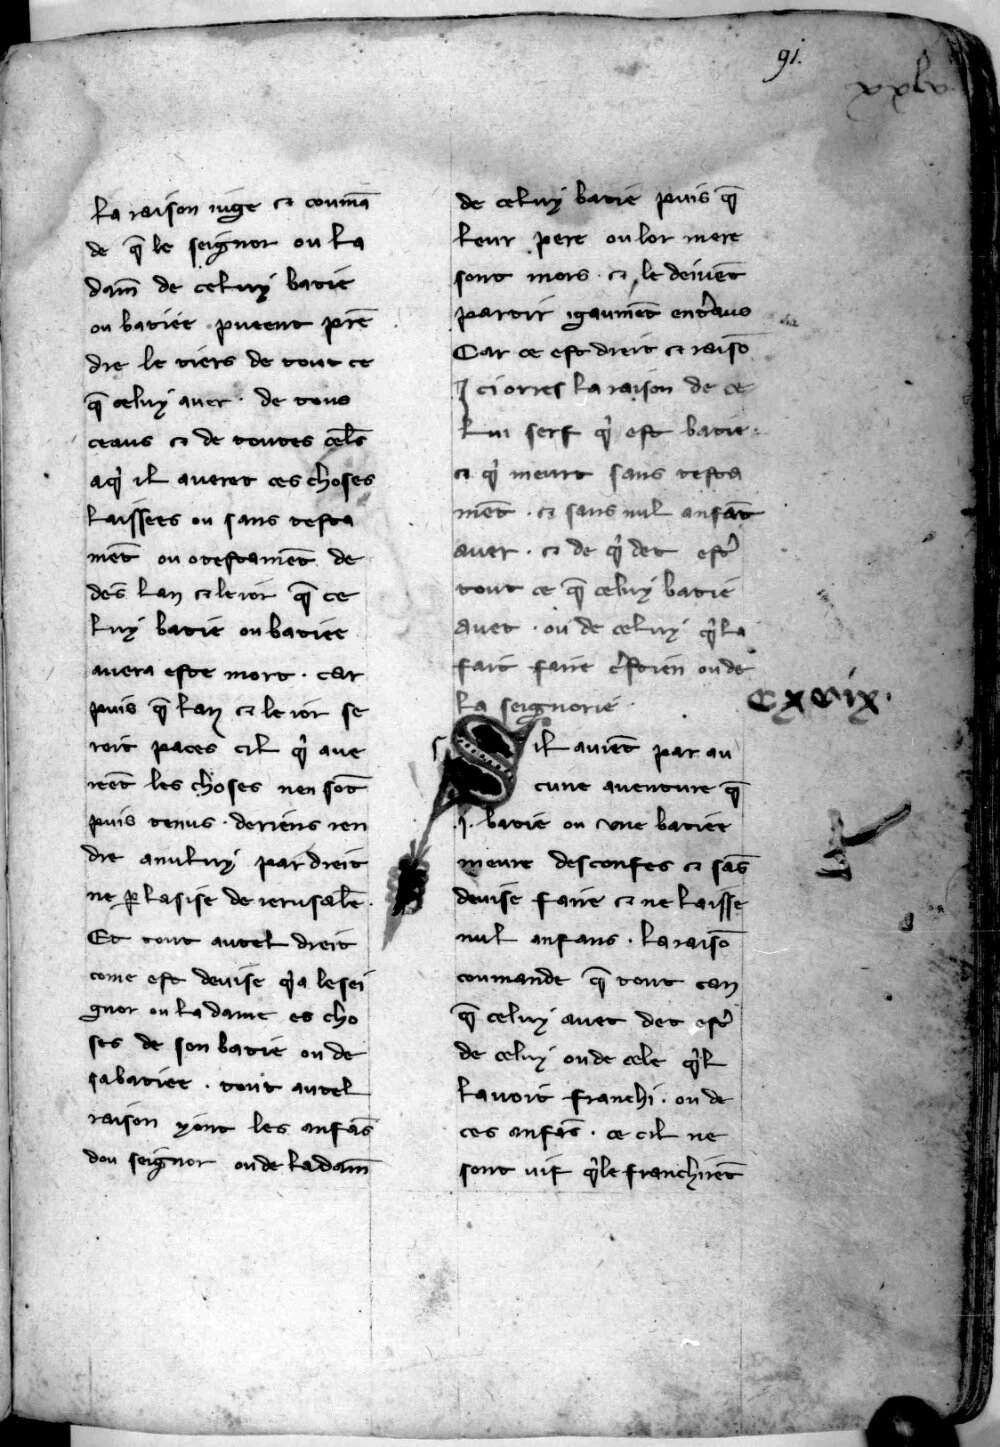 91.
xxlv.
la raison iuge ⁊ coumā
de q̄ le seignor ou la
dam̄ de celuy batie
ou batiee pueent prē
dre le tiers de tout ce
q̄ celuy auer · de tous
ceaus ⁊ de toutes cel̄s
a qͥ il aueret ces choses
laissees ou sans testa
mēt ou o testamēt de
dēs lan ⁊ le ior q̄ ce
luy batie ou batiee
auera este mort · car
puis q̄ lan ⁊ le ior se
roit paces cil qͥ aue
reēt les choses nen sōt
puis tenus · de riens ren
dre a nuluy par dreit
ne ꝑ lasise de ierusal̄e ·
Et tout autel dreit
come est deuise qͥ a le sei
gnor ou la dame es cho
ses de son batie ou de
sa batiee · tout autel
raison y ont les anfās
dou seignor ou de la dam̄
de celuy batie puis q̄
leur pere ou lor mere
sont mors · ⁊ le deiuēt
partir igaumēt entr̄aus
Car ce est dreit ⁊ raisō
I ci orres la raison de ce
lui serf qͥ est batie ·
⁊ qͥ meurt sans testa
mēt · ⁊ sans nul anfāt
auer · ⁊ de qͥ det estr̄
tout ce q̄ celuy batie
auet · ou de celuy qͥ la
fait faire cr̄stien ou de
la seignorie ·
cxcix ·
S il auiēt par au
cune auenture q̄
·j· batie ou une batiee
meure desconfes ⁊ sās
deuise faire ⁊ ne laisse
nul anfans · la raisō
coumande q̄ tout can
q̄ celuy auet det estr̄
de celuy ou de cele qͥl
lauoit franchi · ou de
ces anfās · ce cil ne
sont uif qͥ le franchirēt